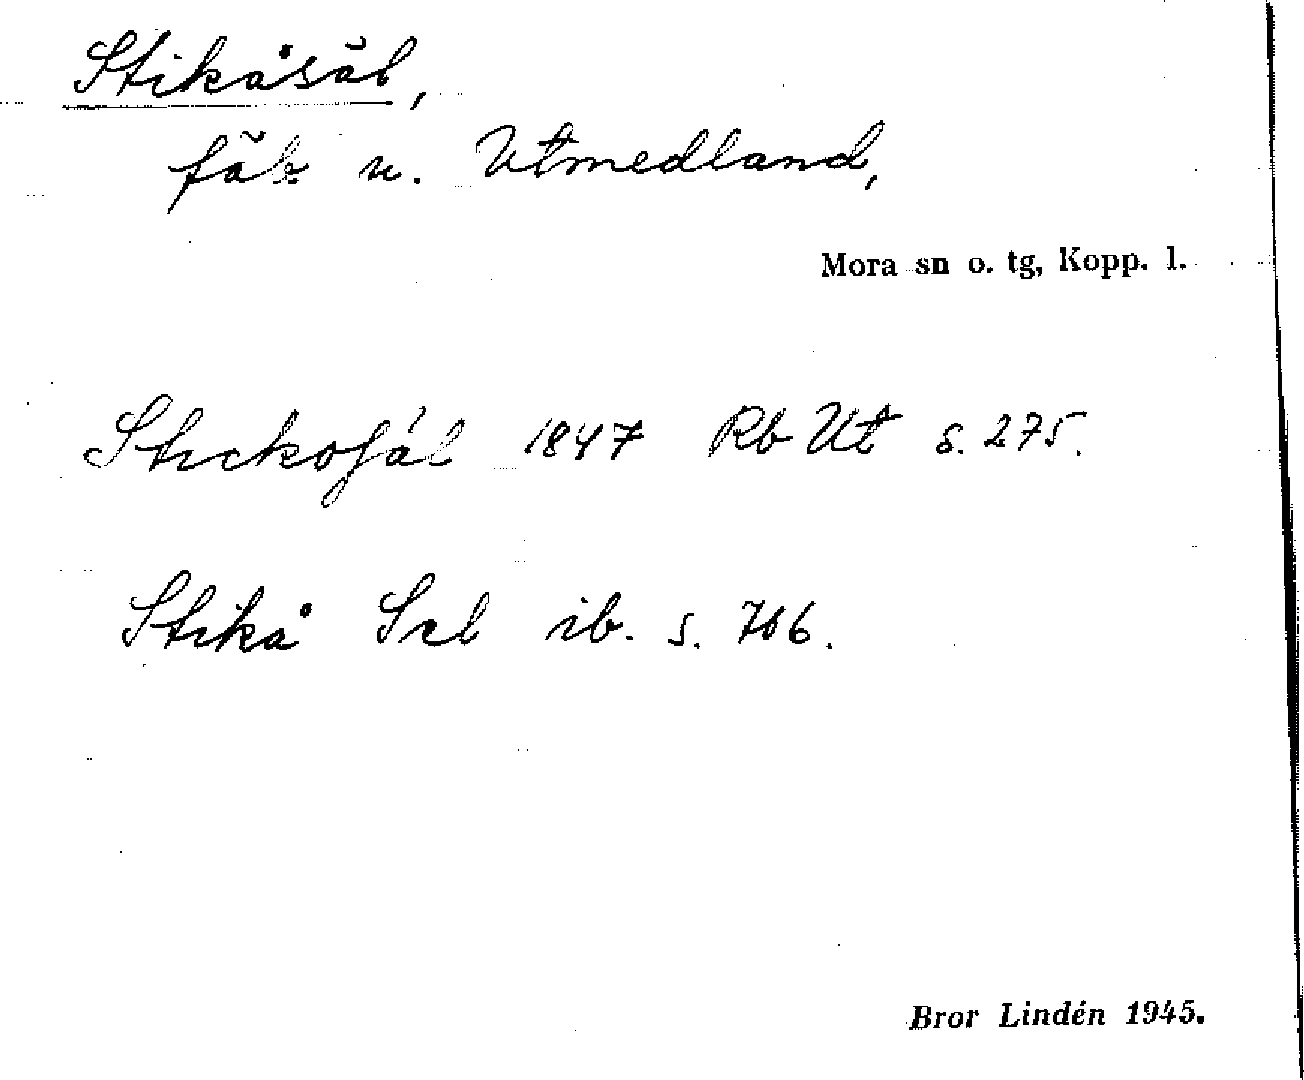 Stikåsäl,
fäb u. Utmedland,
Mora sn o. tg, Kopp. l.
Stickosäl 1847 Rb Ut s. 275.
Stikå Sel ib. s. 706.
Bror Lindén 1945.